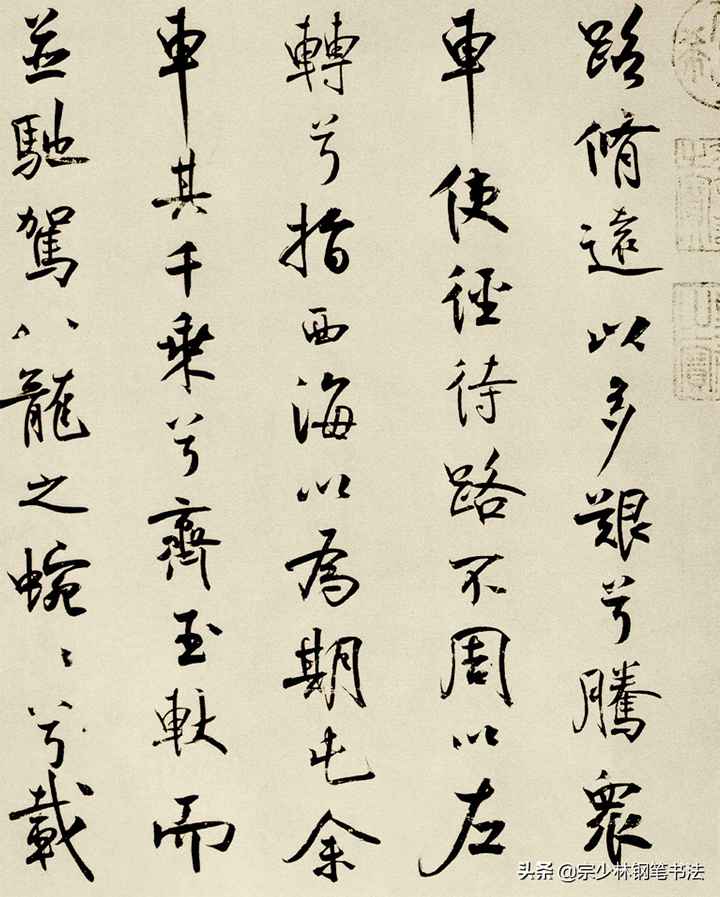 路脩遠以多艱兮騰眾
車使徑待路不周以左
轉兮指西海以為期屯余
車其千乘兮齊玉軑而
並馳駕八龍之蜿〻兮載
头条 @宗少林钢笔书法